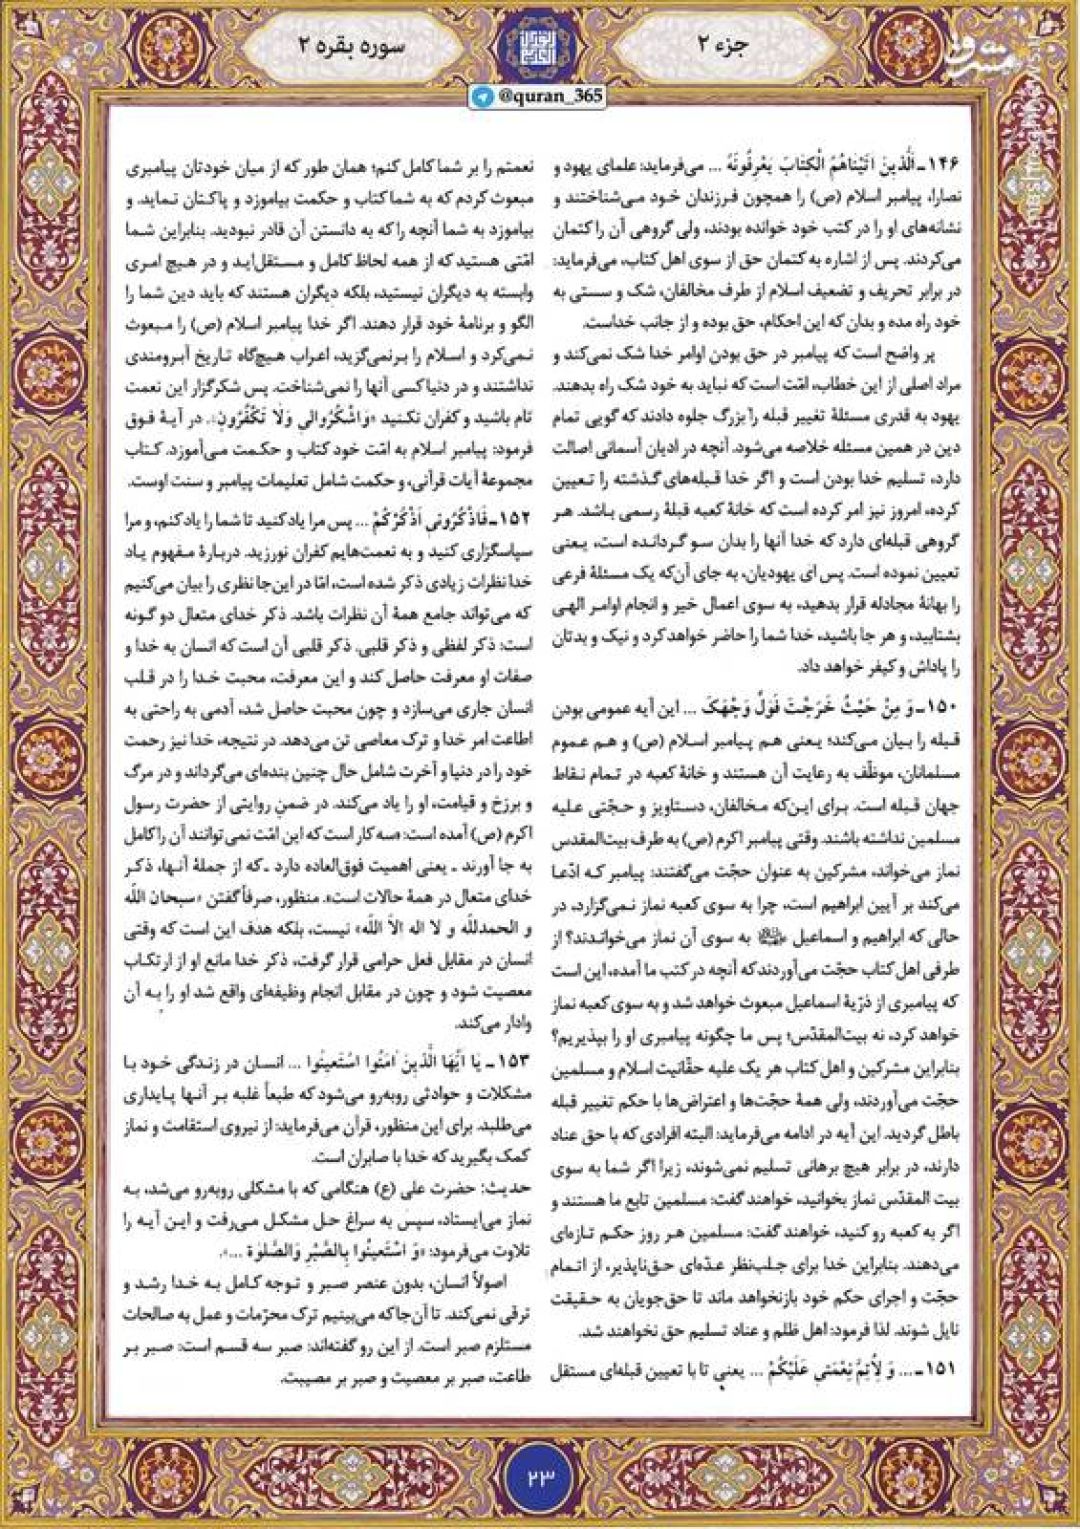 جزء ۲
سوره بقره ۲
مشرق
@quran_365
۱۴۶ـ اَلَّذینَ اتَیْناهُمُ الْکِتابَ یَعْرِفُونَهُ ... می‌فرماید: علمای یهود و
نصارا، پیامبر اسلام (ص) را همچون فرزندان خود می‌شناختند و
نشانه‌های او را در کتب خود خوانده بودند، ولی گروهی آن را کتمان
می‌کردند. پس از اشاره به کتمان حق از سوی اهل کتاب، می‌فرماید:
در برابر تحریف و تضعیف اسلام از طرف مخالفان، شک و سستی به
خود راه مده و بدان که این احکام، حق بوده و از جانب خداست.
پر واضح است که پیامبر در حق بودن اوامر خدا شک نمی‌کند و
مراد اصلی از این خطاب، امّت است که نباید به خود شک راه بدهند.
یهود به قدری مسئلهٔ تغییر قبله را بزرگ جلوه دادند که گویی تمام
دین در همین مسئله خلاصه می‌شود. آنچه در ادیان آسمانی اصالت
دارد، تسلیم خدا بودن است و اگر خدا قبله‌های گذشته را تعیین
کرده، امروز نیز امر کرده است که خانهٔ کعبه قبلهٔ رسمی باشد. هر
گروهی قبله‌ای دارد که خدا آنها را بدان سو گردانده است، یعنی
تعیین نموده است. پس ای یهودیان، به جای آن‌که یک مسئلهٔ فرعی
را بهانهٔ مجادله قرار بدهید، به سوی اعمال خیر و انجام اوامر الهی
بشتابید، و هر جا باشید، خدا شما را حاضر خواهد کرد و نیک و بدتان
را پاداش و کیفر خواهد داد.
۱۵۰ـ وَ مِنْ حَیْثُ خَرَجْتَ فَوَلِّ وَجْهَکَ ... این آیه عمومی بودن
قبله را بیان می‌کند؛ یعنی هم پیامبر اسلام (ص) و هم عموم
مسلمانان، موظّف به رعایت آن هستند و خانهٔ کعبه در تمام نقاط
جهان قبله است. برای این‌که مخالفان، دستاویز و حجّتی علیه
مسلمین نداشته باشند. وقتی پیامبر اکرم (ص) به طرف بیت‌المقدس
نماز می‌خواند، مشرکین به عنوان حجّت می‌گفتند: پیامبر که ادّعا
می‌کند بر آیین ابراهیم است، چرا به سوی کعبه نماز نمی‌گزارد، در
حالی که ابراهیم و اسماعیل به سوی آن نماز می‌خواندند؟ از
طرفی اهل کتاب حجّت می‌آوردند که آنچه در کتب ما آمده، این است
که پیامبری از ذرّیهٔ اسماعیل مبعوث خواهد شد و به سوی کعبه نماز
خواهد کرد، نه بیت‌المقدّس؛ پس ما چگونه پیامبری او را بپذیریم؟
بنابراین مشرکین و اهل کتاب هر یک علیه حقّانیت اسلام و مسلمین
حجّت می‌آوردند، ولی همهٔ حجّت‌ها و اعتراض‌ها با حکم تغییر قبله
باطل گردید. این آیه در ادامه می‌فرماید: البته افرادی که با حق عناد
دارند، در برابر هیچ برهانی تسلیم نمی‌شوند، زیرا اگر شما به سوی
بیت المقدّس نماز بخوانید، خواهند گفت: مسلمین تابع ما هستند و
اگر به کعبه رو کنید، خواهند گفت: مسلمین هر روز حکم تازه‌ای
می‌دهند. بنابراین خدا برای جلب‌نظر عدّه‌ای حق‌ناپذیر، از اتمام
حجّت و اجرای حکم خود بازنخواهد ماند تا حق‌جویان به حقیقت
نایل شوند. لذا فرمود: اهل ظلم و عناد تسلیم حق نخواهند شد.
۱۵۱ـ ... وَ لِأُتِمَّ نِعْمَتی عَلَیْکُمْ ... یعنی تا با تعیین قبله‌ای مستقل
نعمتم را بر شما کامل کنم؛ همان طور که از میان خودتان پیامبری
مبعوث کردم که به شما کتاب و حکمت بیاموزد و پاکتان نماید. و
بیاموزد به شما آنچه را که به دانستن آن قادر نبودید. بنابراین شما
امّتی هستید که از همه لحاظ کامل و مستقل‌اید و در هیچ امری
وابسته به دیگران نیستید، بلکه دیگران هستند که باید دین شما را
الگو و برنامهٔ خود قرار دهند. اگر خدا پیامبر اسلام (ص) را مبعوث
نمی‌کرد و اسلام را برنمی‌گزید، اعراب هیچ‌گاه تاریخ آبرومندی
نداشتند و در دنیا کسی آنها را نمی‌شناخت. پس شکرگزار این نعمت
تام باشید و کفران نکنید «وَاشْکُرُوالی وَلا تَکْفُرُونِ». در آیهٔ فوق
فرمود: پیامبر اسلام به امّت خود کتاب و حکمت می‌آموزد. کتاب
مجموعهٔ آیات قرآنی، و حکمت شامل تعلیمات پیامبر و سنت اوست.
۱۵۲ـ فَاذْکُرُونی اَذْکُرْکُمْ ... پس مرا یاد کنید تا شما را یاد کنم، و مرا
سپاسگزاری کنید و به نعمت‌هایم کفران نورزید. دربارهٔ مفهوم یاد
خدا نظرات زیادی ذکر شده است، امّا در این‌جا نظری را بیان می‌کنیم
که می‌تواند جامع همهٔ آن نظرات باشد. ذکر خدای متعال دو گونه
است: ذکر لفظی و ذکر قلبی. ذکر قلبی آن است که انسان به خدا و
صفات او معرفت حاصل کند و این معرفت، محبت خدا را در قلب
انسان جاری می‌سازد و چون محبت حاصل شد، آدمی به راحتی به
اطاعت امر خدا و ترک معاصی تن می‌دهد. در نتیجه، خدا نیز رحمت
خود را در دنیا و آخرت شامل حال چنین بنده‌ای می‌گرداند و در مرگ
و برزخ و قیامت، او را یاد می‌کند. در ضمنِ روایتی از حضرت رسول
اکرم (ص) آمده است: «سه کار است که این امّت نمی‌توانند آن را کامل
به جا آورند ـ یعنی اهمیت فوق‌العاده دارد ـ که از جملهٔ آنها، ذکر
خدای متعال در همهٔ حالات است». منظور، صرفاً گفتن «سبحان اللّه
و الحمدللّه و لا اله الاّ اللّه» نیست، بلکه هدف این است که وقتی
انسان در مقابل فعل حرامی قرار گرفت، ذکر خدا مانع او از ارتکاب
معصیت شود و چون در مقابل انجام وظیفه‌ای واقع شد او را به آن
وادار می‌کند.
۱۵۳ـ یا اَیُّهَا الَّذینَ امَنُوا اسْتَعینُوا ... انسان در زندگی خود با
مشکلات و حوادثی روبه‌رو می‌شود که طبعاً غلبه بر آنها پایداری
می‌طلبد. برای این منظور، قرآن می‌فرماید: از نیروی استقامت و نماز
کمک بگیرید که خدا با صابران است.
حدیث: حضرت علی (ع) هنگامی که با مشکلی روبه‌رو می‌شد، به
نماز می‌ایستاد، سپس به سراغ حل مشکل می‌رفت و این آیه را
تلاوت می‌فرمود: «وَ اسْتَعینُوا بِالصَّبْرِ وَالصَّلوةِ ...».
اصولاً انسان، بدون عنصر صبر و توجه کامل به خدا رشد و
ترقی نمی‌کند. تا آن‌جا که می‌بینیم ترک محرّمات و عمل به صالحات
مستلزم صبر است. از این رو گفته‌اند: صبر سه قسم است: صبر بر
طاعت، صبر بر معصیت و صبر بر مصیبت.
۲۳